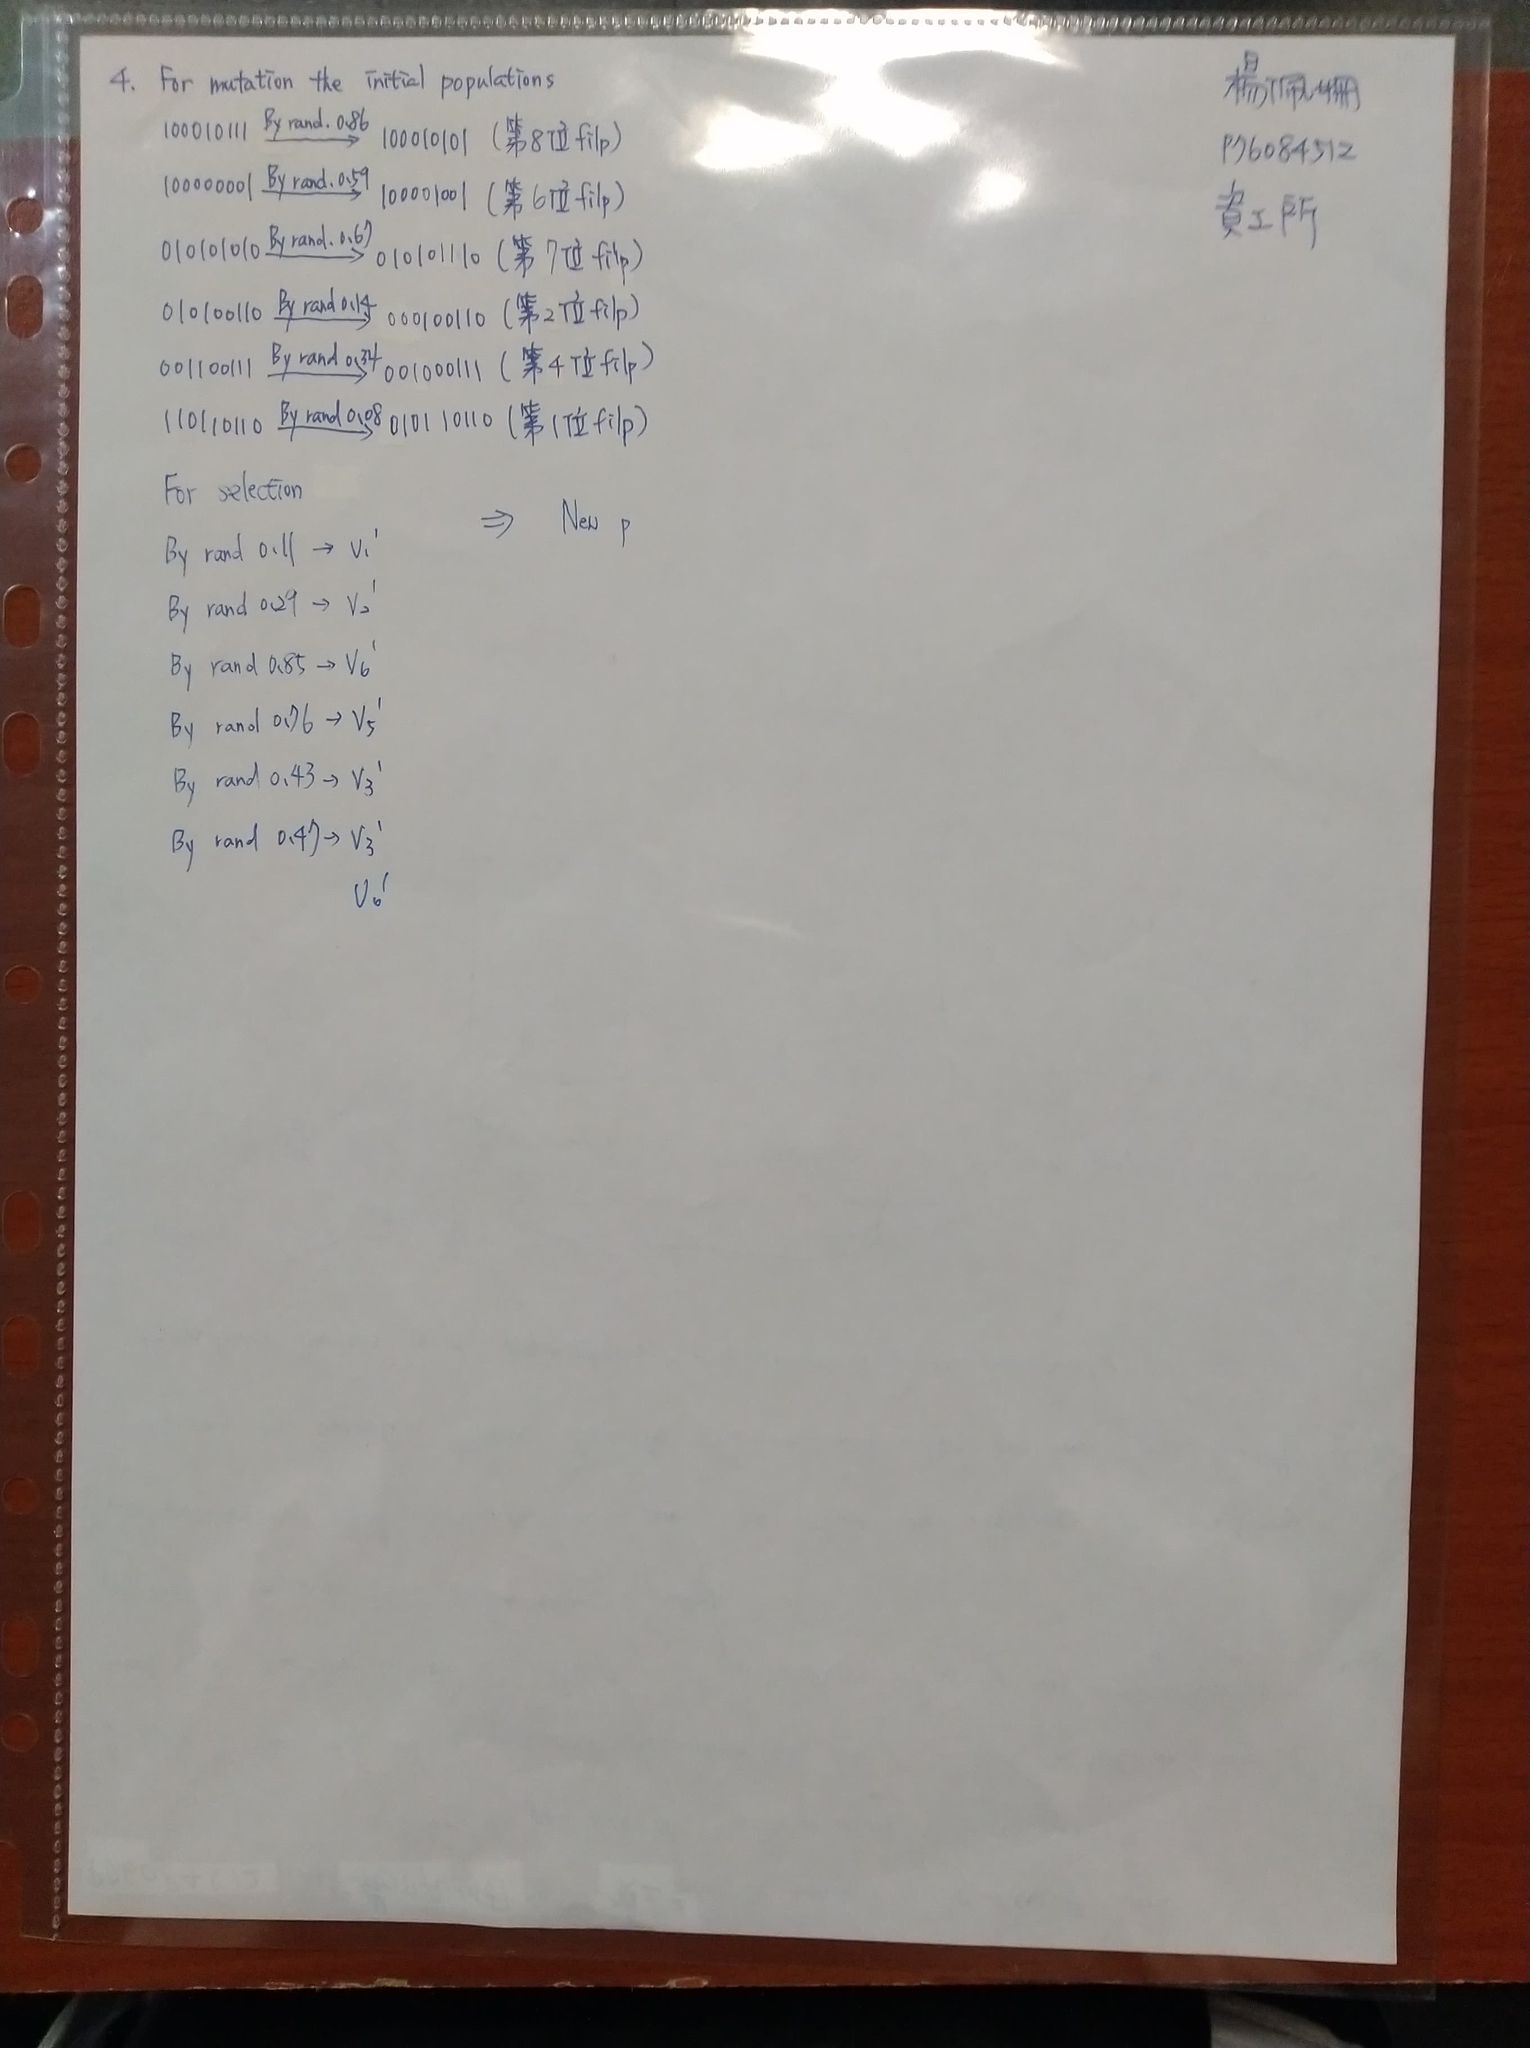 4. For mutation the initial populations
100010111 By rand. 0.86 → 100010101 (第8位filp)
10000001 By rand. 0.59 → 100001001 (第6位filp)
010101010 By rand. 0.67 → 010101110 (第7位filp)
010100110 By rand 0.14 → 000100110 (第2位filp)
001100111 By rand 0.34 → 001000111 (第4位filp)
110110110 By rand 0.08 → 010110110 (第1位filp)
For selection
By rand 0.11 → V₁'
By rand 0.29 → V₂'
By rand 0.85 → V₆'
By rand 0.76 → V₅'
By rand 0.43 → V₃'
By rand 0.47 → V₃'
V₆'
⇒ New p
楊佩珊
P76084512
資工所